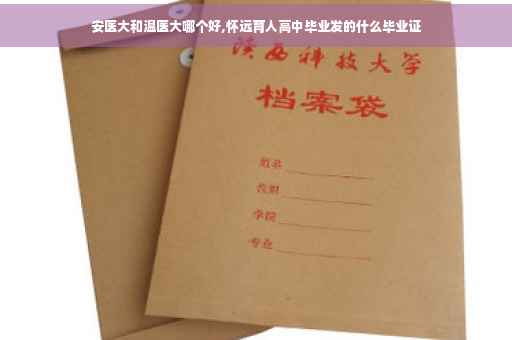 安医大和温医大哪个好,怀远育人高中毕业发的什么毕业证
陕西科技大学
档案袋
姓名
教职
学院
专业